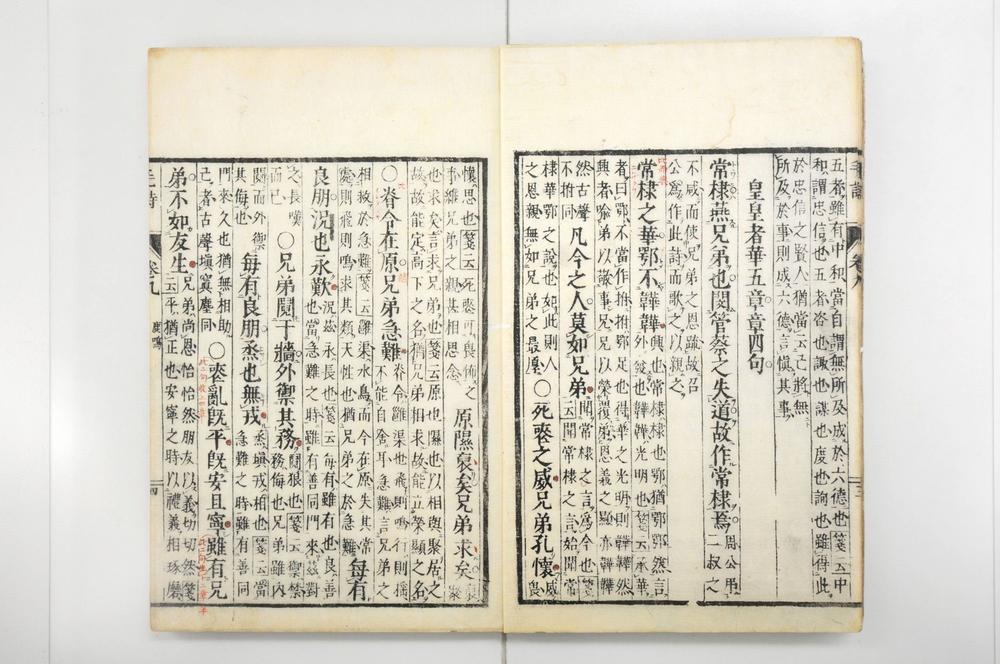 五者雖有中和當自謂無所及成於六德也箋云中
和謂忠信也五者咨也諏也謀也度也詢也雖得此
於忠信之賢人猶當云己將無
所及於事則成六德言愼其事
皇皇者華五章章四句
常棣燕兄弟也閔管蔡之失道故作常棣焉
周公弔
二叔之
不咸而使兄弟之恩疏故召
公爲作此詩而歌之以親之
常棣之華鄂不韡韡
興也常棣棣也鄂猶鄂鄂然言
外發也韡韡光明也箋云承華
者曰鄂不當作拊拊鄂足也得華之光明則韡韡然
興者喻弟以敬事兄兄以榮覆弟恩義之顯亦韡韡然
古聲
不拊同
凡今之人莫如兄弟
聞常棣之言爲今也箋
云聞常棣之言始聞常
棣華鄂之說也如此則人
之恩親無如兄弟之最厚
〇死喪之威兄弟孔懷
威
畏
毛詩 卷九
三
懷思也箋云死喪可畏怖之
事維兄弟之親甚相思念
原隰裒矣兄弟求矣
裒
聚
也求矣言求兄弟也箋云原也隰也以相與聚居之
故故能定高下之名猶兄弟相求故能立榮顯之名
〇脊令在原兄弟急難
脊令雝渠也飛則鳴行則搖
不能自舍耳急難言兄弟之
相救於急難箋云雝渠水鳥而今在原失其常
處則飛則鳴求其類天性也猶兄弟之於急難
每有
良朋況也永歎
況茲永長也箋云每有雖有也良善
也當急難之時雖有善同門來茲對
之長嘆
而已
〇兄弟鬩于牆外禦其務
鬩狠也箋云禦禁
務侮也兄弟雖內
鬩而外禦
其侮也
每有良朋烝也無戎
烝塡戎相也箋云當
急難之時雖有善同
門來久也猶無相助
己者古聲塡寘塵同
〇喪亂旣平旣安且寧雖有兄
弟不如友生
兄弟尚恩怡怡然朋友以義切切然箋
云平猶正也安寧之時以禮義相琢磨
毛詩 卷九
鹿鳴
四